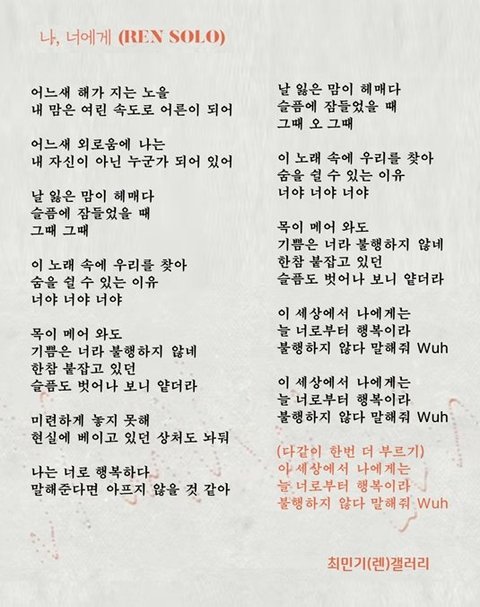 나, 너에게 (REN SOLO)
어느새 해가 지는 노을
내 맘은 여린 속도로 어른이 되어
어느새 외로움에 나는
내 자신이 아닌 누군가 되어 있어
날 잃은 맘이 헤매다
슬픔에 잠들었을 때
그때 그때
이 노래 속에 우리를 찾아
숨을 쉴 수 있는 이유
너야 너야 너야
목이 메어 와도
기쁨은 너라 불행하지 않네
한참 붙잡고 있던
슬픔도 벗어나 보니 얕더라
미련하게 놓지 못해
현실에 베이고 있던 상처도 놔둬
나는 너로 행복하다
말해준다면 아프지 않을 것 같아
날 잃은 맘이 헤매다
슬픔에 잠들었을 때
그때 오 그때
이 노래 속에 우리를 찾아
숨을 쉴 수 있는 이유
너야 너야 너야
목이 메어 와도
기쁨은 너라 불행하지 않네
한참 붙잡고 있던
슬픔도 벗어나 보니 얕더라
이 세상에서 나에게는
늘 너로부터 행복이라
불행하지 않다 말해줘 Wuh
이 세상에서 나에게는
늘 너로부터 행복이라
불행하지 않다 말해줘 Wuh
(다같이 한번 더 부르기)
이 세상에서 나에게는
늘 너로부터 행복이라
불행하지 않다 말해줘 Wuh
최민기(렌)갤러리